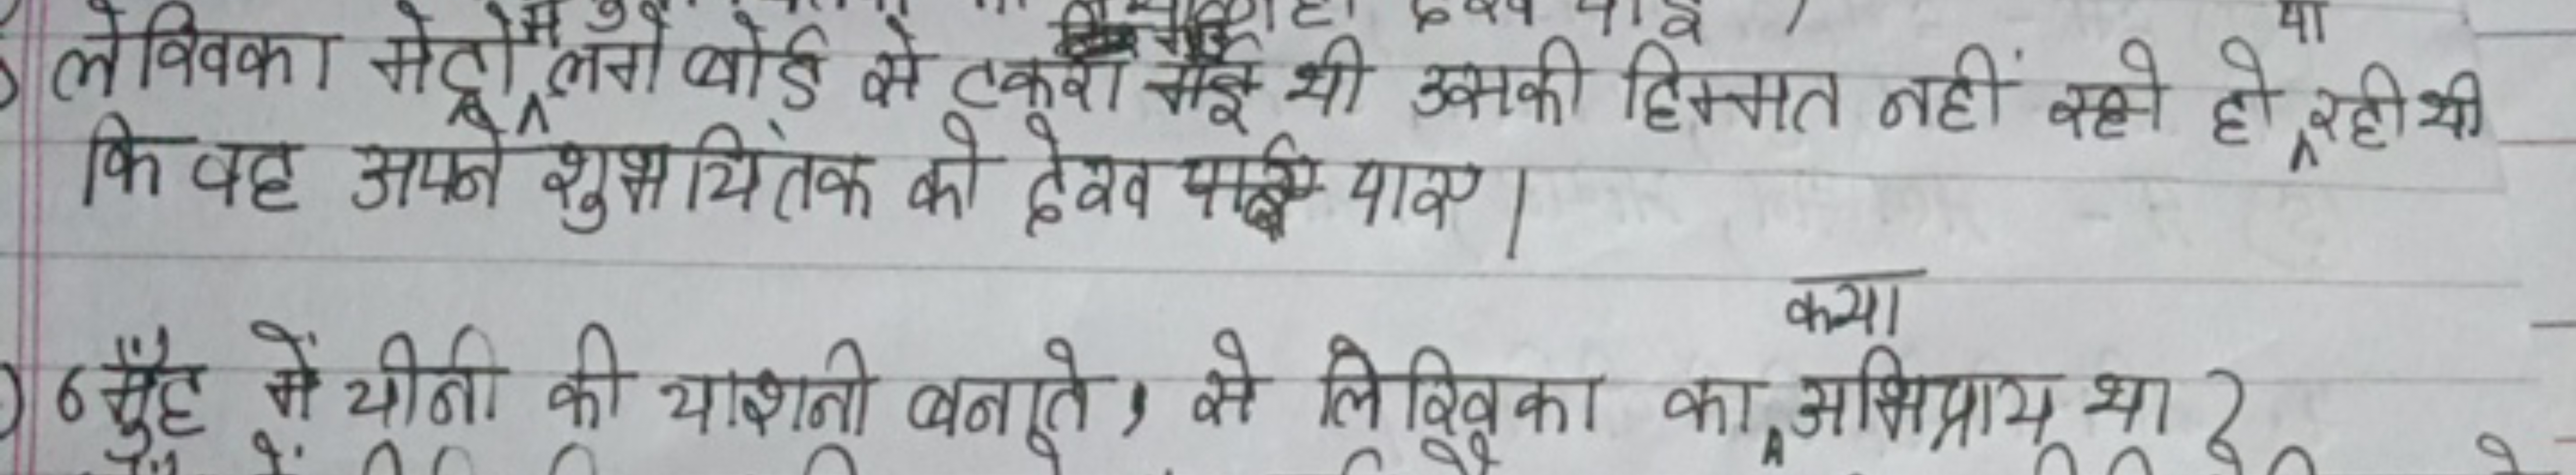 देख पाई ।
लेखिका मेट्रो में लगे बोर्ड से टकरा गई थी उसकी हिम्मत नहीं हो पा रही थी
कि वह अपने शुभचिंतक को देख पाए ।
6 मुँह में चीनी की चाशनी बनाते, से लिखिका का क्या अभिप्राय था ?